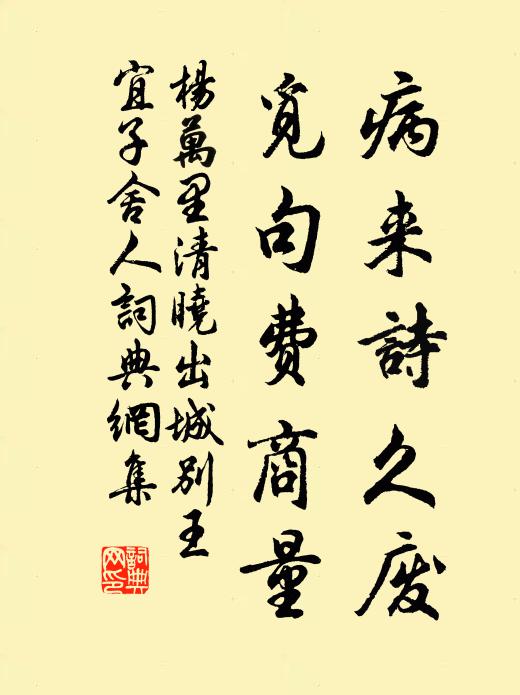 病来詩久废
覓句费商量
楊萬里清曉出城别王
宜子舍人詞典網集
詞典网印